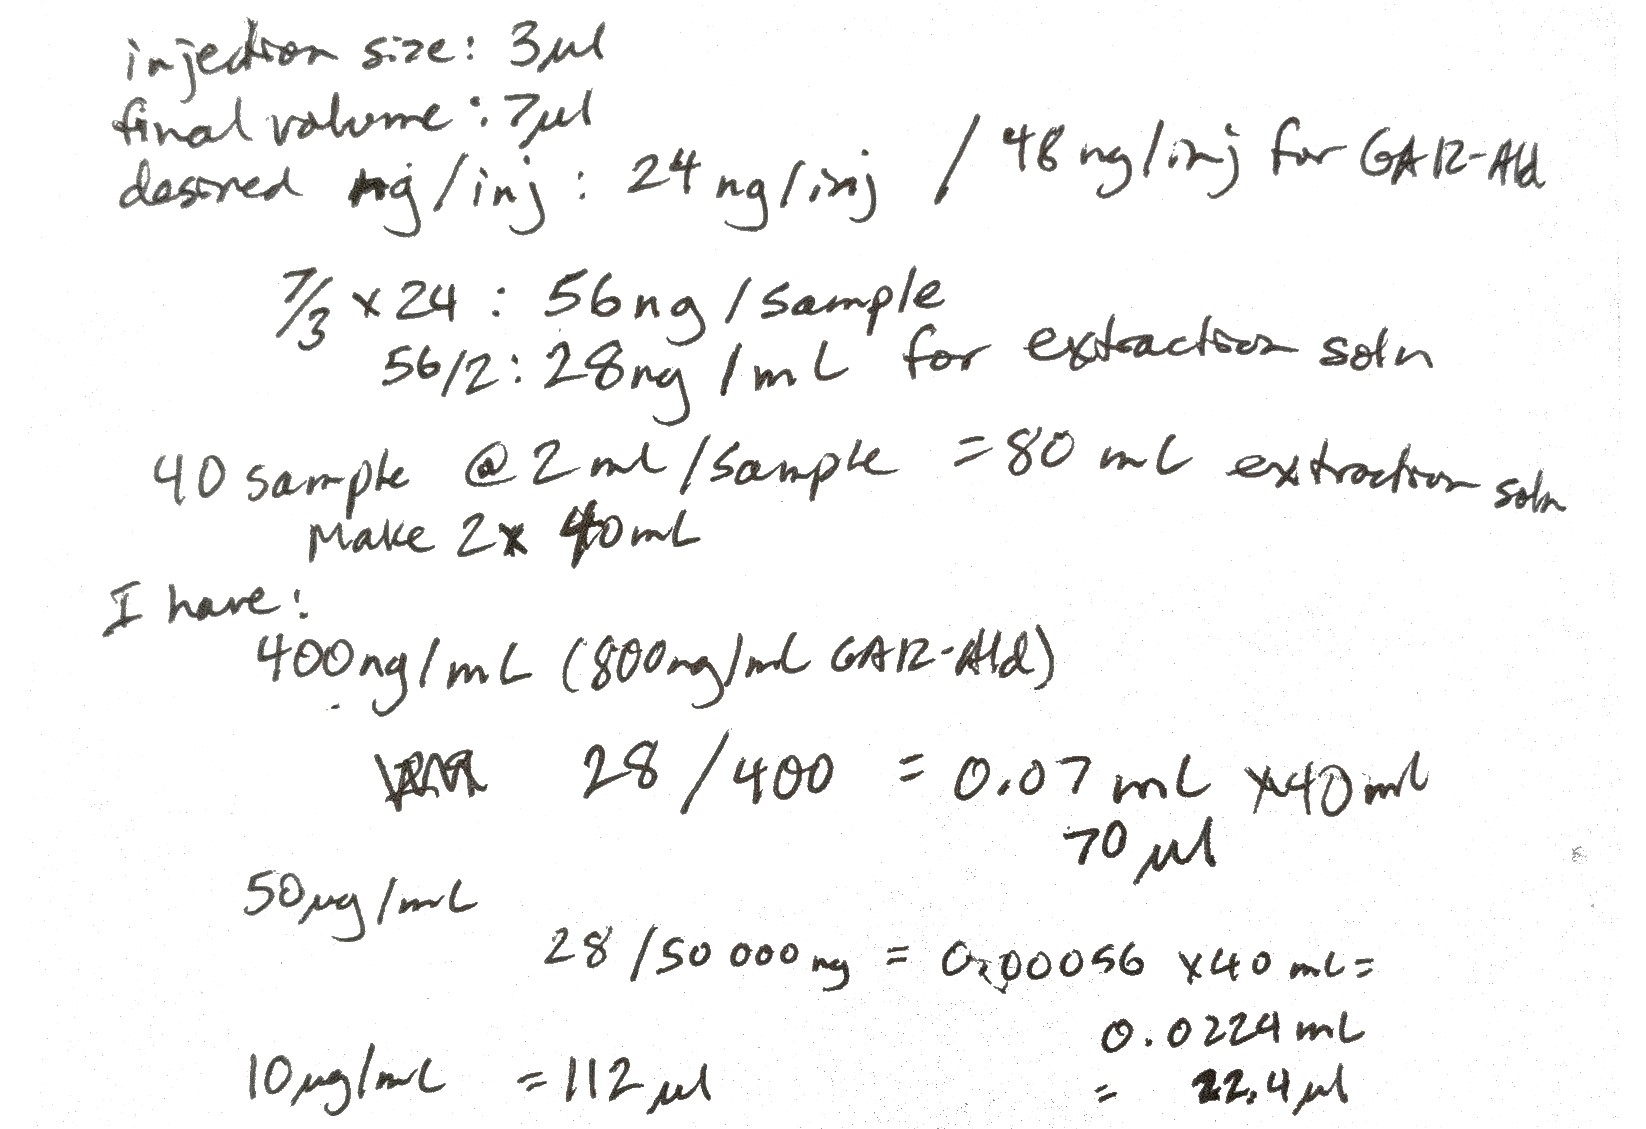 injection size: 3µl
final volume: 7µl
desired ng/inj: 24 ng/inj / 48 ng/inj for GAR-Ald
7/3 x 24 : 56ng / sample
56/2: 28ng / mL for extraction soln
40 sample @ 2 ml/sample = 80 mL extraction soln
Make 2x 40mL
I have:
400ng/mL (800ng/mL GAR-Ald)
28 / 400 = 0.07 mL x40ml
70 µl
50µg/mL
28 /50 000 ng = 0.00056 x40 mL =
0.0224 mL
10µg/mL = 112 µl = 22.4 µl